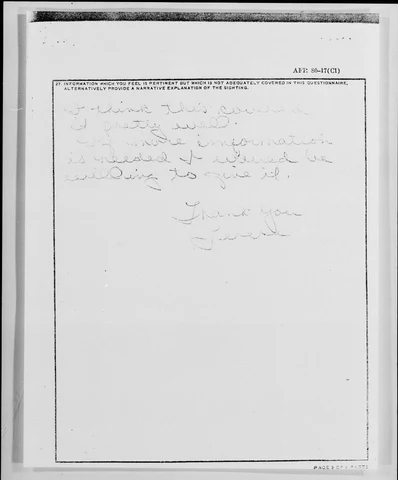 AFR 80-17(C1)
27. INFORMATION WHICH YOU FEEL IS PERTINENT BUT WHICH IS NOT ADEQUATELY COVERED IN THIS QUESTIONNAIRE,
ALTERNATIVELY PROVIDE A NARRATIVE EXPLANATION OF THE SIGHTING.
I think this covers
it pretty well.
If more information
is needed I would be
willing to give it.
Thank you
PAGE